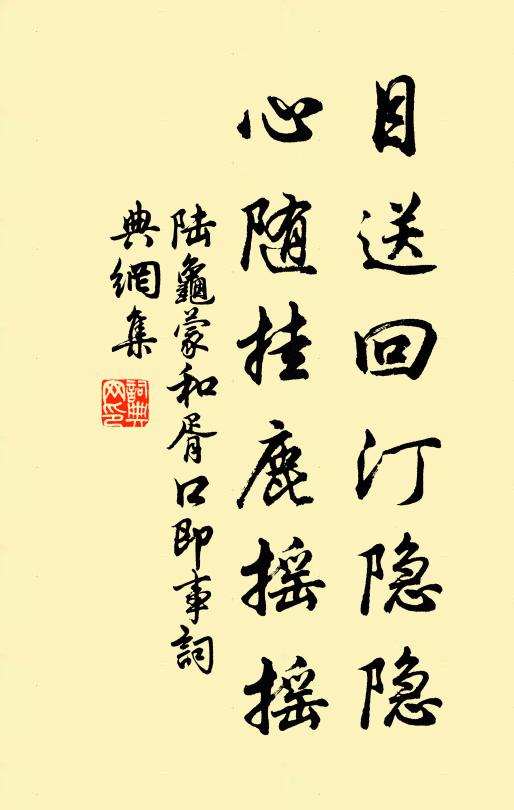 目送回汀隐隐
心随挂鹿摇摇
陆龜蒙和胥口即事詞
典網集
詞典
网印